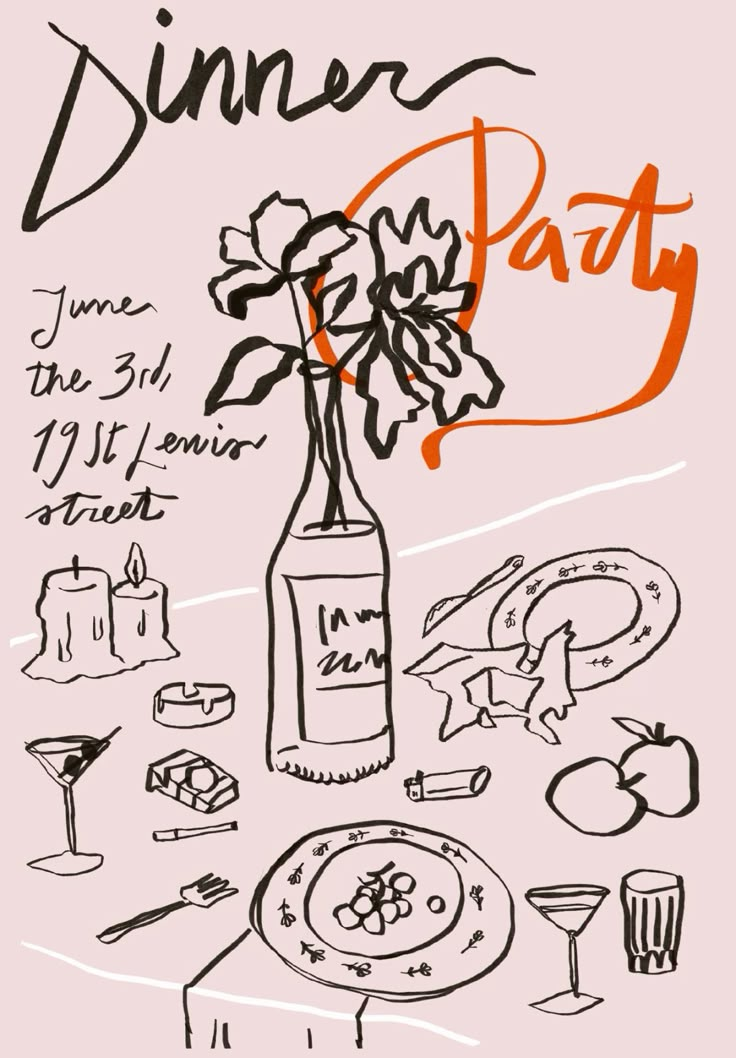 Dinner
Party
June
the 3rd,
19 St Lewis
street